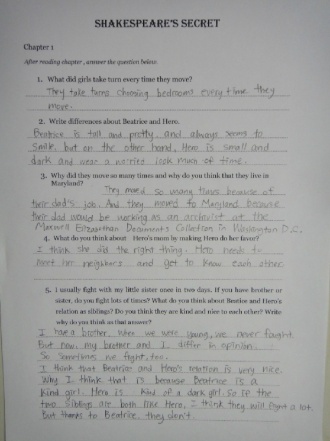 SHAKESPEARE'S SECRET
Chapter 1
After reading chapter , answer the question below.
1. What did girls take turn every time they move?
They take turns choosing bedrooms every time they
move.
2. Write differences about Beatrice and Hero.
Beatrice is tall and pretty, and always seems to
Smile, but on the other hand, Hero is small and
dark and wear a worrite look much of time.
3. Why did they move so many times and why do you think that they live in
Maryland?
They moved so many times because of
their dad's job. And they moved to Maryland because
their dad would be working as an archivist at the
Maxwell Elizabethan Documents Collection in Washington D.C,.
4. What do you think about Hero's mom by making Hero do her favor?
I think she did the right thing. Hero needs to
meet her neighbors and get to know each other.
5. I usually fight with my little sister once in two days. If you have brother or
sister, do you fight lots of times? What do you think about Bestice and Hero's
relation as siblings? Do you think they are kind and nice to each other? Write
why do you think as that answer?
I have a brother, when we were young, we never faught.
But now, my brother and I differ in opinion.
So Sometimes we fight, too.
I think that Beatrice and Hero's relation is very nice.
Why I think that is because Beatrice is a
kind girl. Hero is kind of a dark girl. So if the
two siblings are both like Hero, I think they will fight a lot.
But thanks to Beatrice, they don't